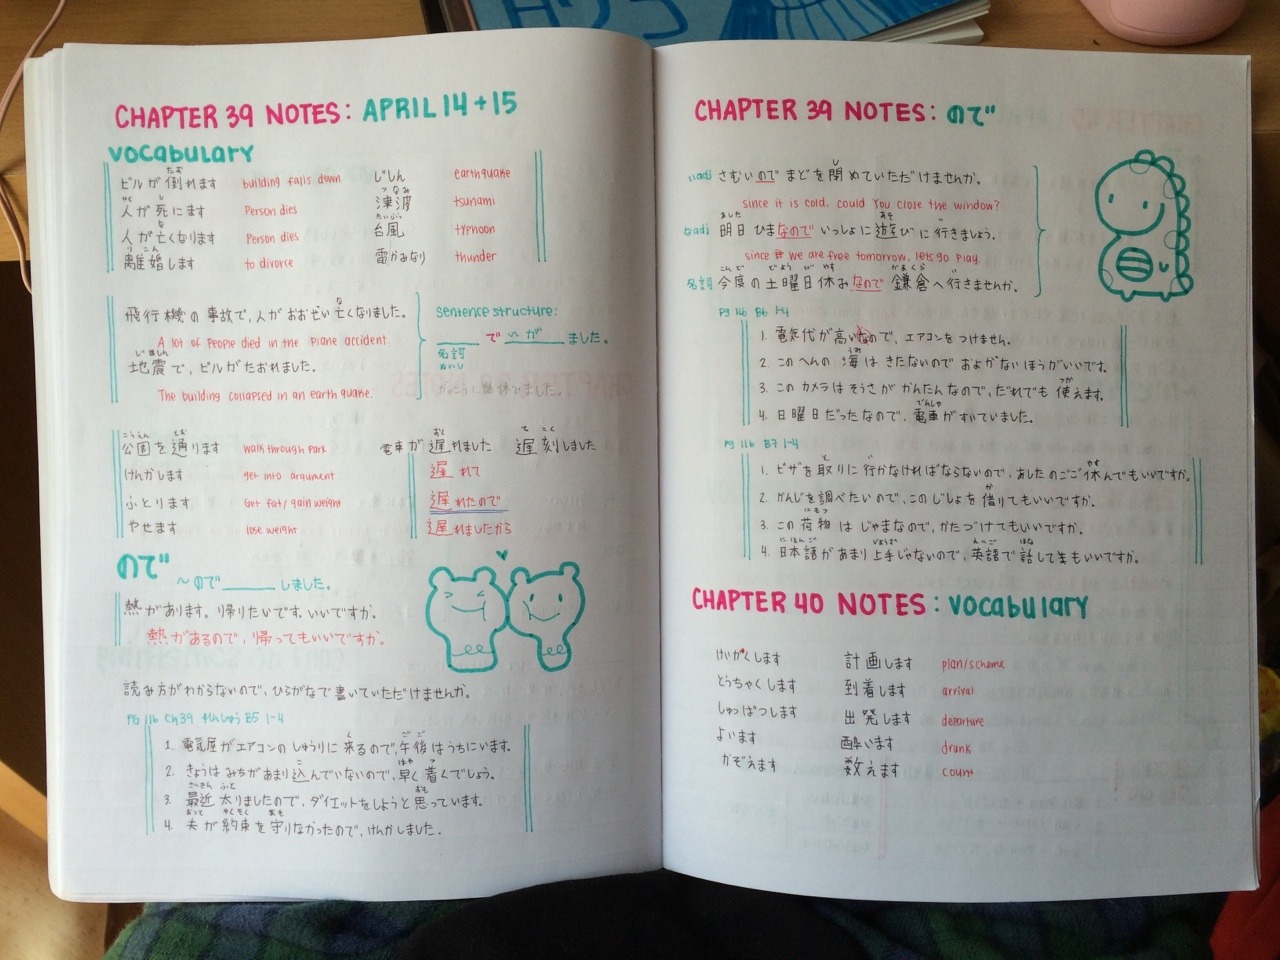 CHAPTER 39 NOTES: APRIL 14 + 15
vocabulary
たお
ビルが倒れます building falls down
じしん earthquake
ひと し
人が死にます Person dies
つなみ
津波 tsunami
な
人が亡くなります Person dies
たいふう
台風 typhoon
りこん
離婚します to divorce
雷かみなり thunder
な
飛行機の事故で、人がおおぜい亡くなりました。
A lot of people died in the plane accident.
じしん
地震で、ビルがたおれました。
The building collapsed in an earthquake.
sentence structure:
____で〜が____ました。
名詞
めいし
こうえん とお
公園を通ります walk through park
けんかします get into argument
ふとります Get fat/gain weight
やせます lose weight
おく ち こく
電車が遅れました 遅刻しました
遅れて
遅れたので
遅れましたから
ので
〜ので____しました。
熱があります。帰りたいです。いいですか。
熱があるので、帰ってもいいですか。
読み方がわからないので、ひらがなで書いていただけませんか。
PG 116 Ch39 れんしゅう B5 1-4
く ごご
1. 電気屋がエアコンのしゅうりに来るので、午後はうちにいます。
こ はや つ
2. きょうはみちがあまり込んでいないので、早く着くでしょう。
さいきん ふと おも
3. 最近太りましたので、ダイエットをしようと思っています。
おっと やくそく まも
4. 夫が約束を守りなかったので、けんかしました。
CHAPTER 39 NOTES: ので
し
いadj さむいのでまどを閉めていただけませんか。
since it is cold, could you close the window?
あした あそ
なadj 明日ひまなのでいっしょに遊びに行きましょう。
since we are free tomorrow, lets go play.
こんど どようび やす かまくら
名詞 今度の土曜日休みなので鎌倉へ行きませんか。
Pg 116 B6 1-4
1. 電気代が高いので、エアコンをつけません。
うみ
2. このへんの海はきたないのでおよがないほうがいいです。
つか
3. このカメラはそうさがかんたんなので、だれでも使えます。
でんしゃ
4. 日曜日だったなので、電車がすいていました。
Pg 116 B7 1-4
と やす
1. ピザを取りに行かなければならないので、あしたのごご休んでもいいですか。
か
2. かんじを調べたいので、このじしょを借りてもいいですか。
にもつ
3. この荷物はじゃまなので、かたづけてもいいですか。
にほんご じょうず えいご はな
4. 日本語があまり上手じゃないので、英語で話してもいいですか。
CHAPTER 40 NOTES: vocabulary
けいかくします 計画します plan/scheme
とうちゃくします 到着します arrival
しゅっぱつします 出発します departure
よいます 酔います drunk
かぞえます 数えます count